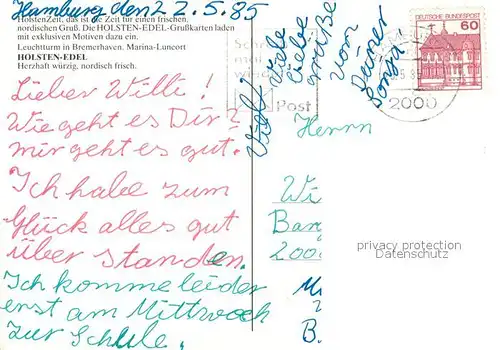 Hamburg den 22.5.85
HolstenZeit, das ist die Zeit für einen frischen,
nordischen Gruß. Die HOLSTEN-EDEL-Grußkarten laden
mit exklusiven Motiven dazu ein.
Leuchtturm in Bremerhaven. Marina-Luncort
HOLSTEN-EDEL
Herzhaft würzig, nordisch frisch.
Lieber Willi!
Wie geht es Dir?
mir geht es gut.
Ich habe zum
Glück alles gut
über standen.
Ich komme leider
erst am Mittwoch
zur Schule.
Viele
liebe
Grüße
vom
Deiner
Sonja
Post
2000
DEUTSCHE BUNDESPOST
60
Herrn
Wi
Bar
2000
privacy protection
Datenschutz
B.